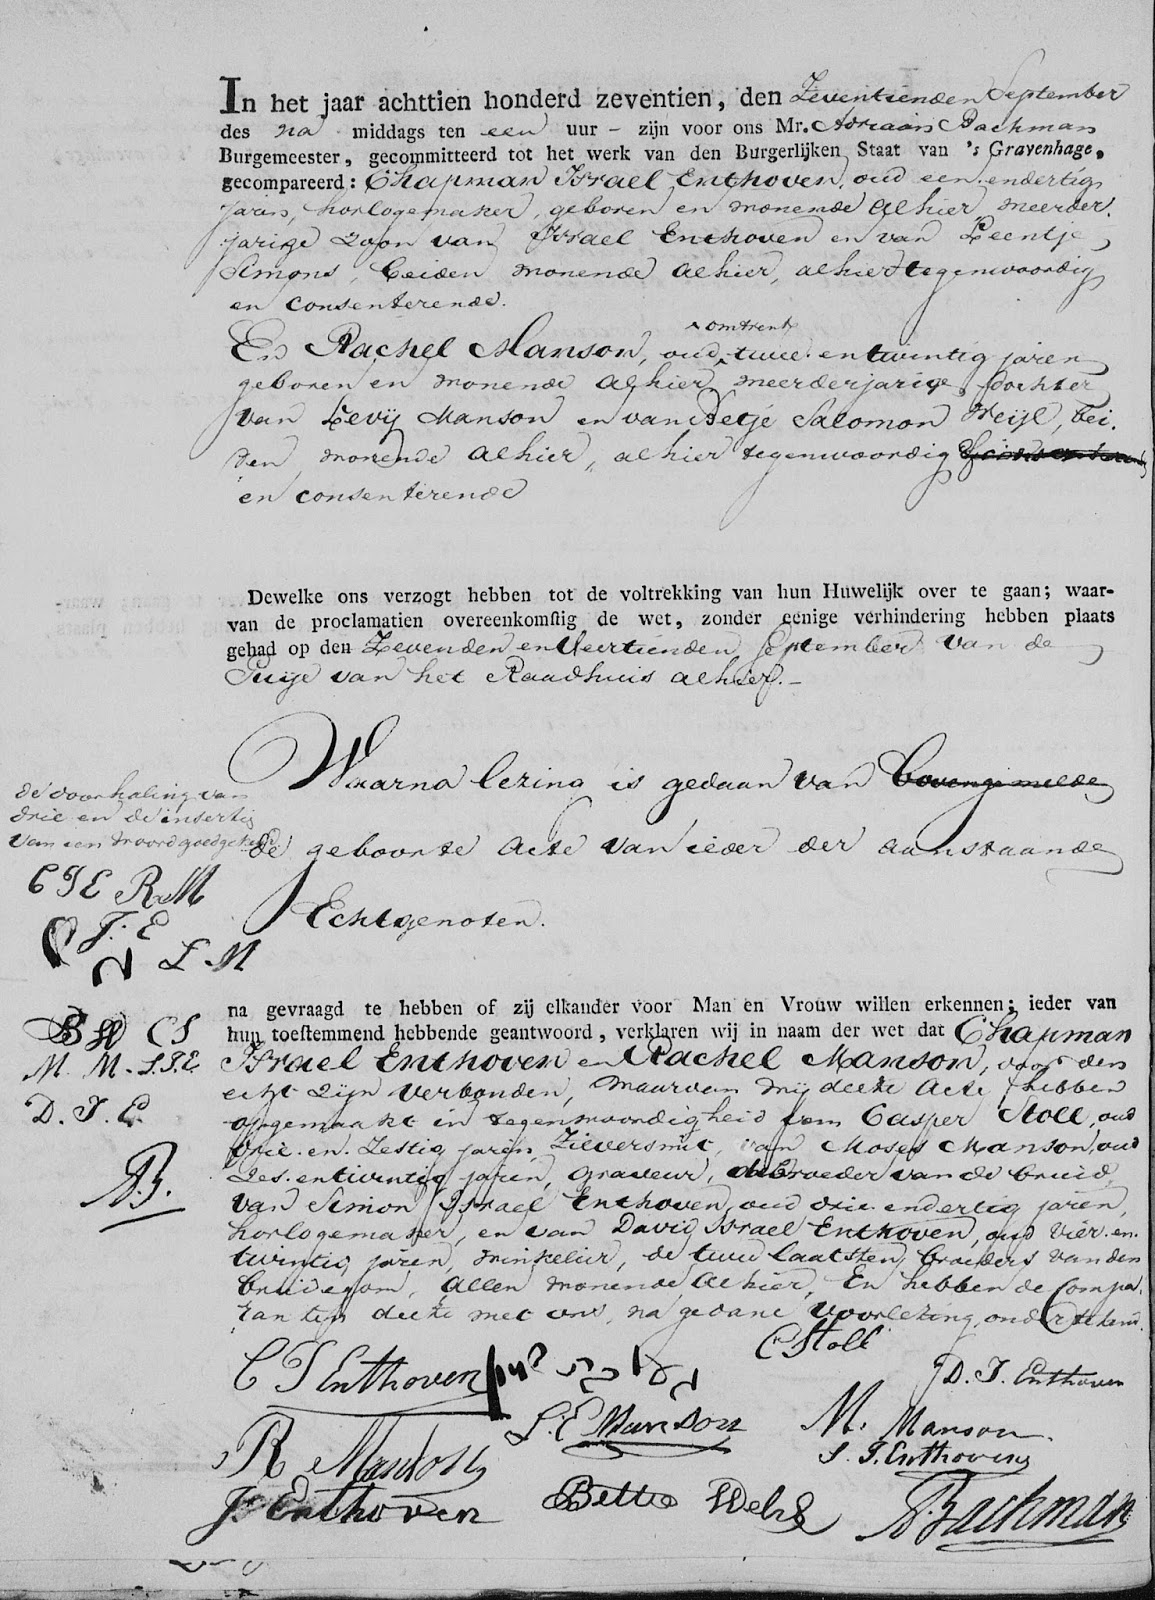 In het jaar achttien honderd zeventien, den Zeventienden September
des na middags ten een uur – zijn voor ons Mr. Adriaan Bachman
Burgemeester, gecommitteerd tot het werk van den Burgerlijken Staat van 's Gravenhage,
gecompareerd: Chapman Israel Enthoven, oud een endertig
jaren, horlogemaker, geboren en wonende alhier, meerder.
jarige zoon van Israel Enthoven en van Leentje
Simons, beiden wonende alhier, alhier tegenwoordig
en consenterende.
omtrent
En Rachel Manson, oud twee en twintig jaren
geboren en wonende alhier meerderjarige dochter
van Levij Manson en van Betje Salomon Weijl, bei.
den wonende alhier, alhier tegenwoordig
en consenterende
Dewelke ons verzogt hebben tot de voltrekking van hun Huwelijk over te gaan; waar-
van de proclamatien overeenkomstig de wet, zonder eenige verhindering hebben plaats
gehad op den Zevenden en Veertienden September van de
Puije van het Raadhuis alhier. –
Waarna lezing is gedaan van bovengemelde
de geboorte acte van ieder der aanstaande
Echtgenoten.
de doorhaling van
drie en de insertie
van een woord goedgekeurd
C I E R M
J. E
L M
B W C S
M. M. S. I. E
D. I. E.
A.B.
na gevraagd te hebben of zij elkander voor Man en Vrouw willen erkennen; ieder van
hun toestemmend hebbende geantwoord, verklaren wij in naam der wet dat Chapman
Israel Enthoven en Rachel Manson, door den
echt zijn verbonden, waarvan wij deeze acte hebben
opgemaakt in tegenwoordigheid van Casper Stoll, oud
drie. en. Zestig jaren, Zilversmit, van Moses Manson, oud
Zes. entwintig jaren, graveur, broeder van de bruid,
van Simon Israel Enthoven, oud drie endertig jaren,
horlogemaker, en van David Israel Enthoven, oud vier. en.
twintig jaren, winkelier, de twee laatsten broeders van den
bruidegom, allen wonende alhier, En hebben de Compa.
ranten deeze met ons, na gedane voorlezing, ondertekend.
C I Enthoven
C Stoll
D. I. Enthoven
L. E Manson
M. Manson
R Manson
S. I. Enthoven
J: Enthoven
Bette
A Bachman